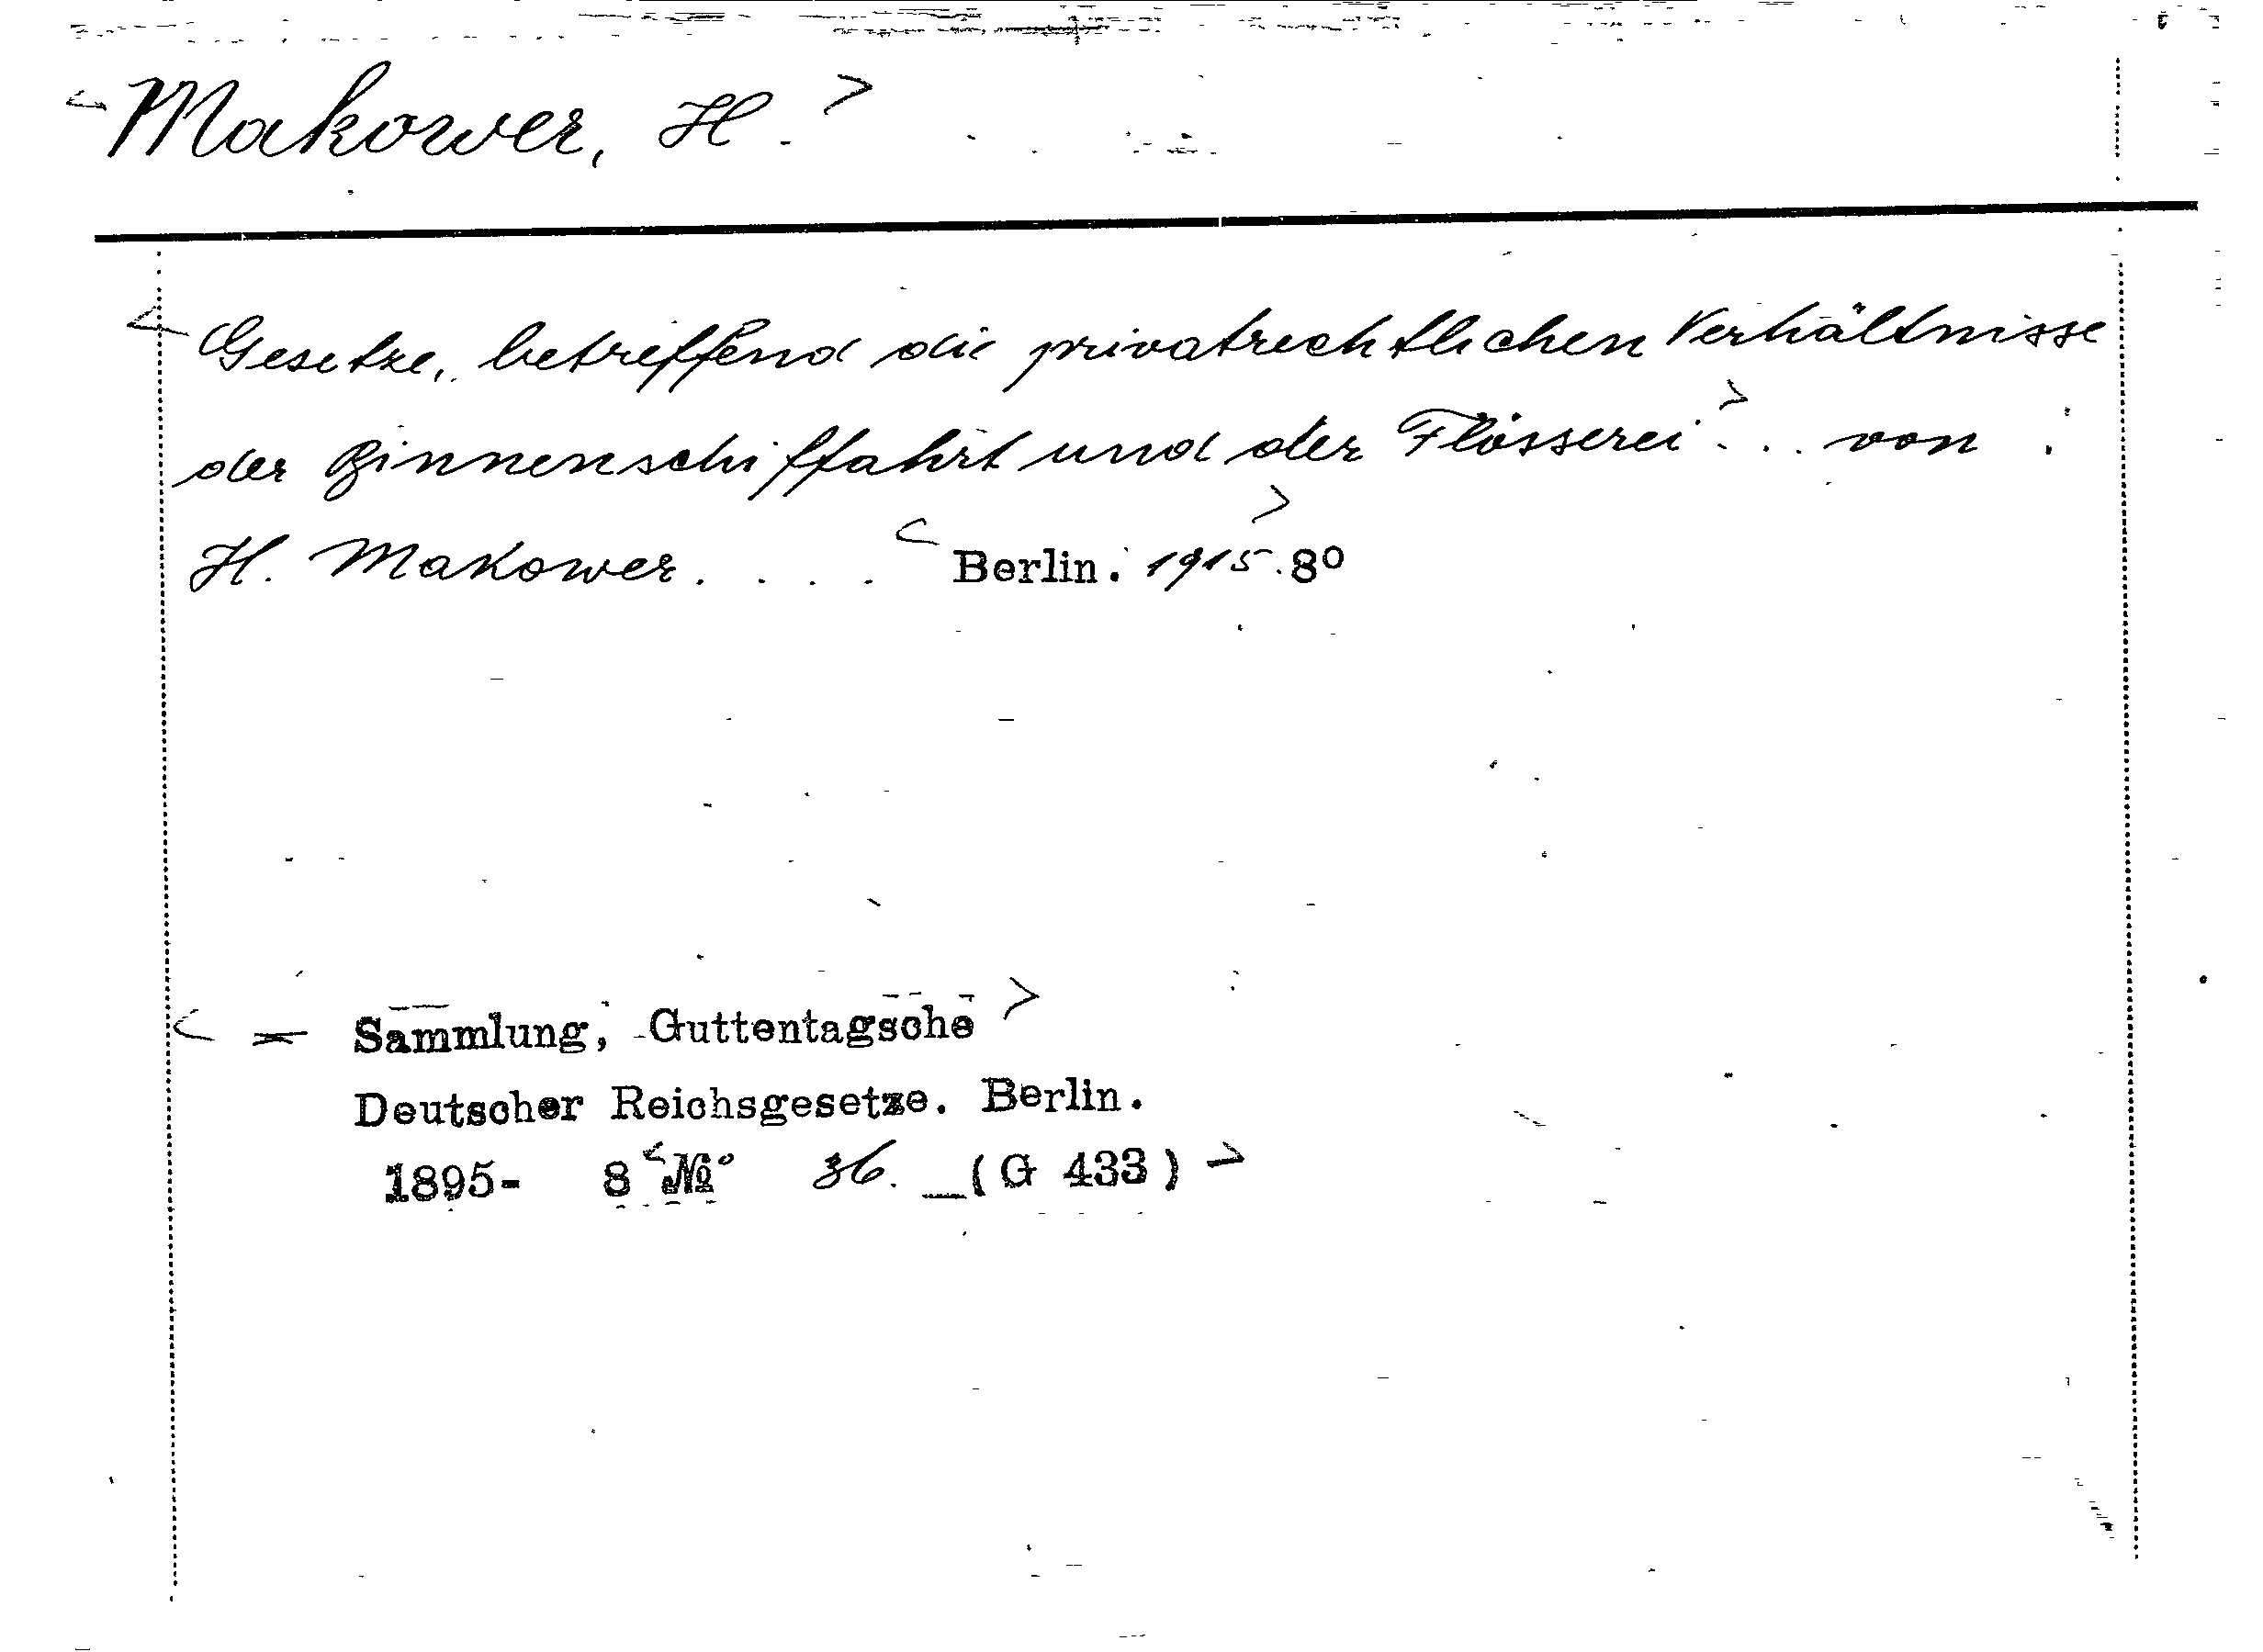 < Makower, H. >
< Gesetze, betreffend die privatrechtlichen Verhältnisse
der Binnenschiffahrt und der Flösserei > . . . von
H. Makower. . . . < Berlin. 1915 > . 8°
< = Sammlung, Guttentagsche >
Deutscher Reichsgesetze. Berlin.
1895- 8 < № 36. (G 433) >